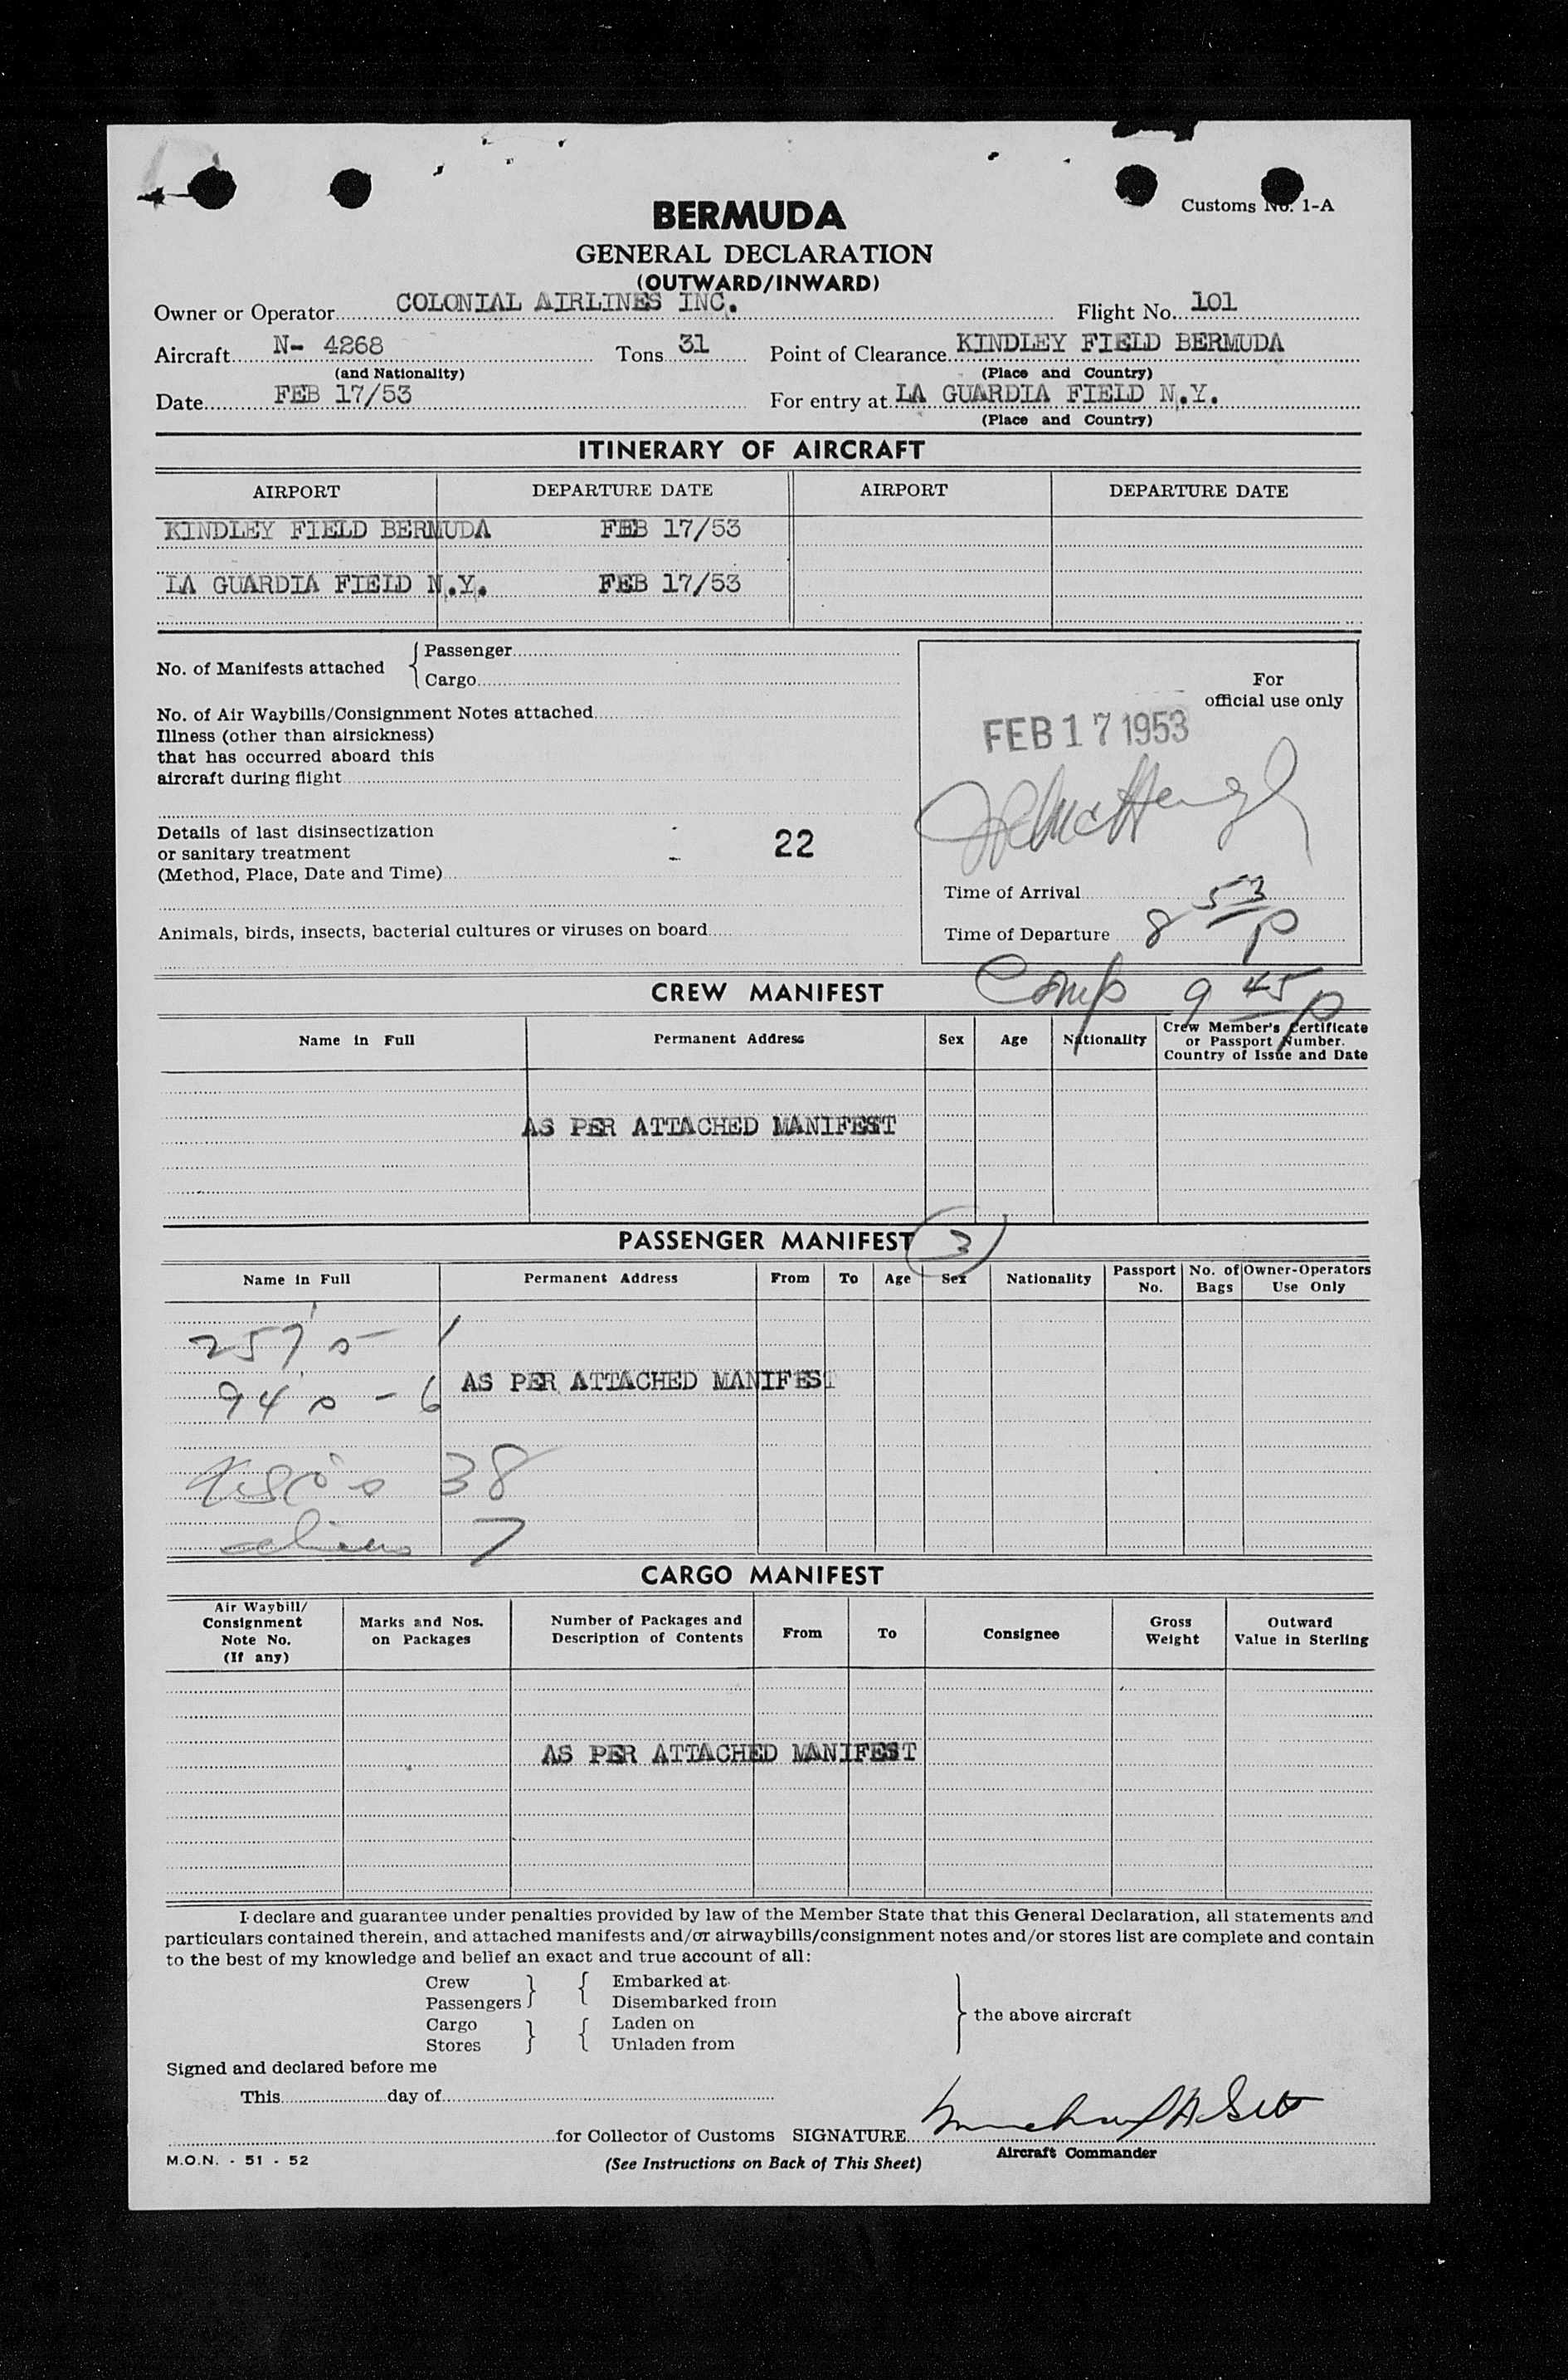 Customs No. 1-A
BERMUDA
GENERAL DECLARATION
(OUTWARD/INWARD)
Owner or Operator COLONIAL AIRLINES INC. Flight No. 101
Aircraft N- 4268 Tons 31 Point of Clearance KINDLEY FIELD BERMUDA
(and Nationality) (Place and Country)
Date FEB 17/53 For entry at LA GUARDIA FIELD N.Y.
(Place and Country)
ITINERARY OF AIRCRAFT
AIRPORT DEPARTURE DATE AIRPORT DEPARTURE DATE
KINDLEY FIELD BERMUDA FEB 17/53
LA GUARDIA FIELD N.Y. FEB 17/53
No. of Manifests attached { Passenger
Cargo
For
official use only
No. of Air Waybills/Consignment Notes attached
FEB 17 1953
Illness (other than airsickness)
that has occurred aboard this
aircraft during flight
Details of last disinsectization
or sanitary treatment 22
(Method, Place, Date and Time)
Time of Arrival
Animals, birds, insects, bacterial cultures or viruses on board
Time of Departure 8 53 P
CREW MANIFEST Comp 9 45 P
Name in Full Permanent Address Sex Age Nationality Crew Member's Certificate
or Passport Number.
Country of Issue and Date
AS PER ATTACHED MANIFEST
PASSENGER MANIFEST 3
Name in Full Permanent Address From To Age Sex Nationality Passport No. No. of Bags Owner-Operators Use Only
257's 1
94's - 6 AS PER ATTACHED MANIFEST
USC's 38
aliens 7
CARGO MANIFEST
Air Waybill/
Consignment
Note No.
(If any)
Marks and Nos.
on Packages
Number of Packages and
Description of Contents
From To Consignee
Gross
Weight
Outward
Value in Sterling
AS PER ATTACHED MANIFEST
I declare and guarantee under penalties provided by law of the Member State that this General Declaration, all statements and
particulars contained therein, and attached manifests and/or airwaybills/consignment notes and/or stores list are complete and contain
to the best of my knowledge and belief an exact and true account of all:
Crew } { Embarked at
Passengers Disembarked from
Cargo } { Laden on } the above aircraft
Stores Unladen from
Signed and declared before me
This day of
for Collector of Customs SIGNATURE
Aircraft Commander
M.O.N. - 51 - 52 (See Instructions on Back of This Sheet)